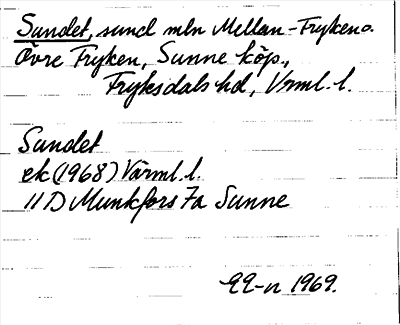 Sundet, sund mln Mellan-Fryken o.
Övre Fryken, Sunne köp.,
Fryksdals hd, Vrml. l.
Sundet
ek (1968) Värml. l.
11 D Munkfors 7a Sunne
-n 1969.